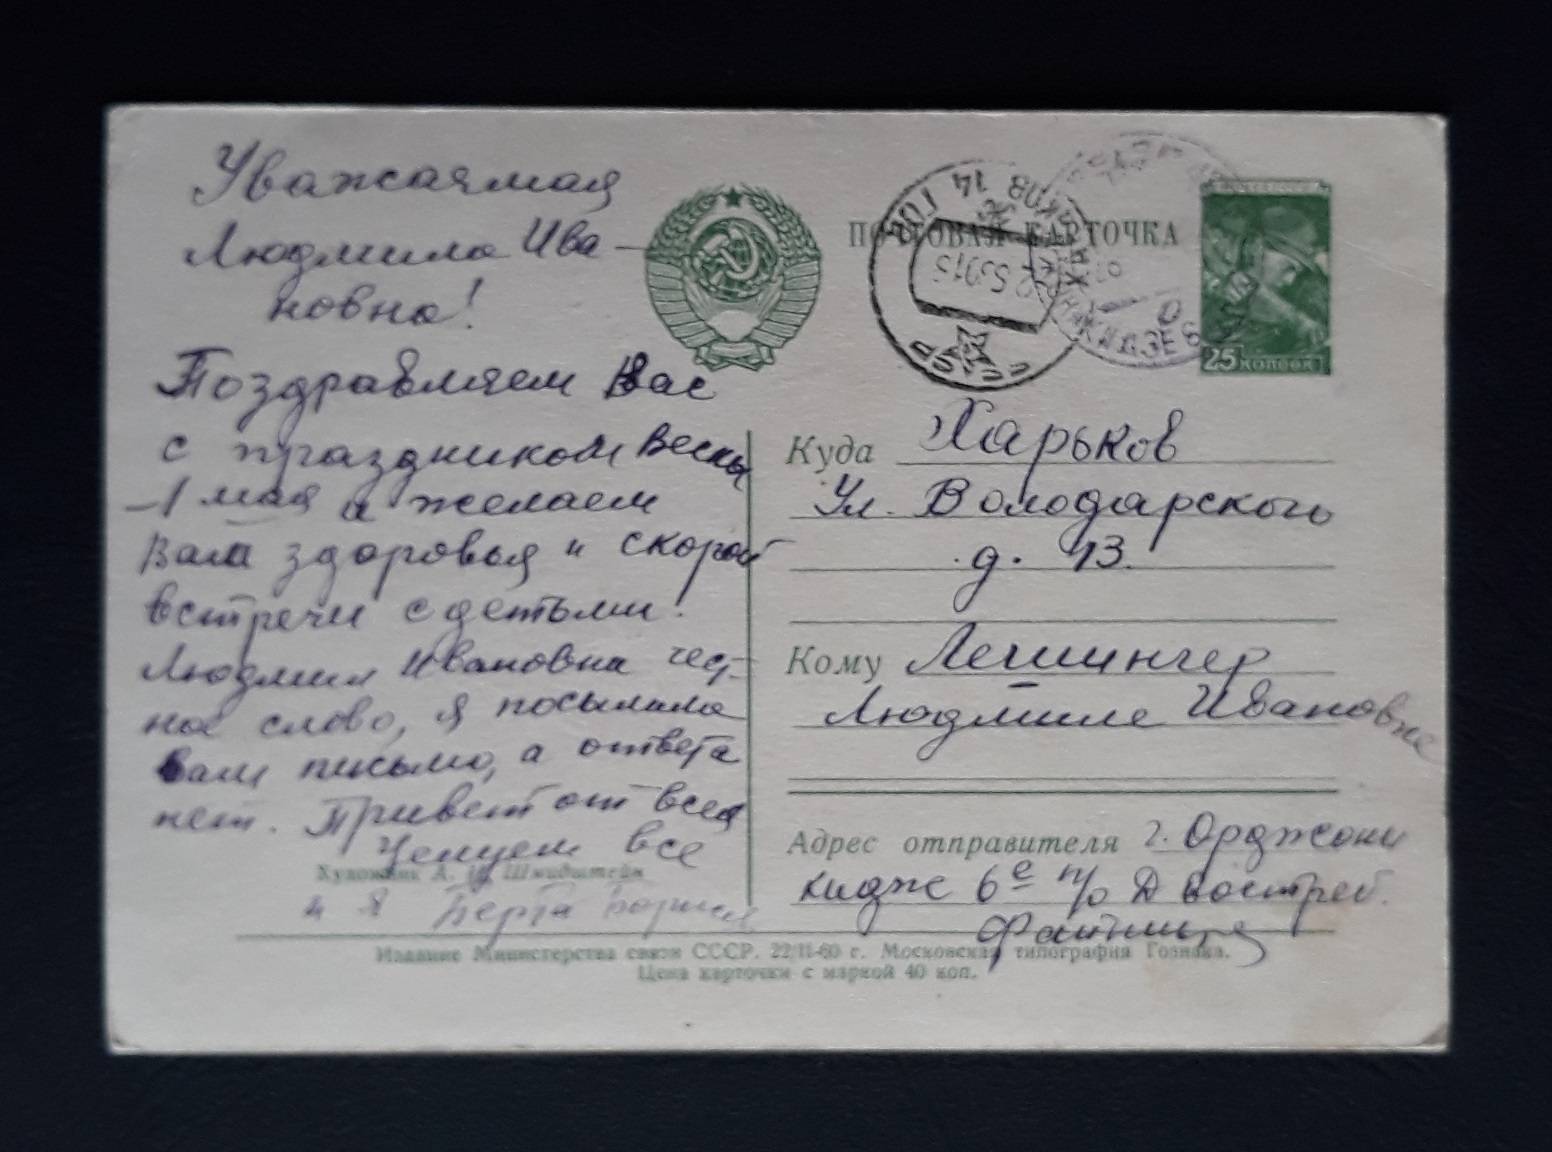 Уважаемая
Людмила Ива-
новна!
Поздравляем Вас
с праздником Весны
-1 мая и желаем
Вам здоровья и скорой
встречи с детьми!
Людмила Ивановна чес-
ное слово, я посылала
Вам письмо, а ответа
нет. Привет от всех
Целуем все
Художник А. Шмидштейн
и я Берта Борис
ПОЧТОВАЯ КАРТОЧКА
ХАРЬКОВ 14 ГОР
СССР
25 КОПЕЕК
Куда Харьков
Ул. Володарского
д. 43.
Кому Лейшингер
Людмиле Ивановне
Адрес отправителя г. Орджони
кидзе 6е п/о Д востреб.
Издание Министерства связи СССР. 22/II-60 г. Московская типография Гознака.
Цена карточки с маркой 40 коп.